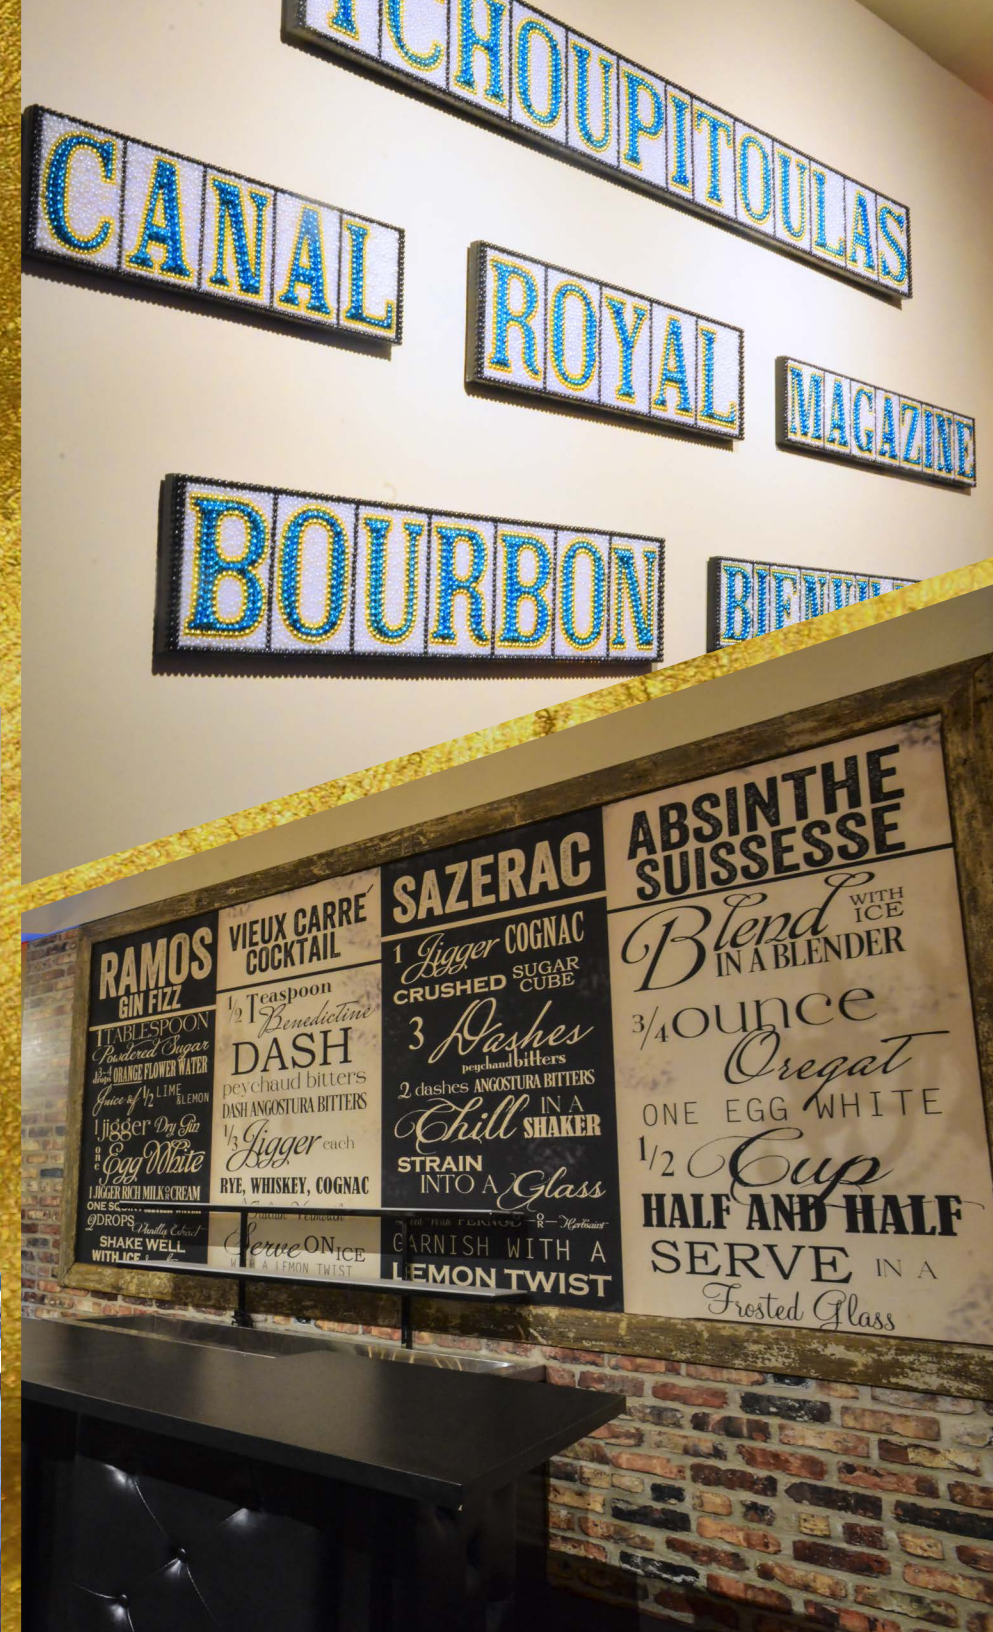 TCHOUPITOULAS
CANAL
ROYAL
MAGAZINE
BOURBON
RAMOS
GIN FIZZ
1 TABLESPOON
Powdered Sugar
3-4 drops ORANGE FLOWER WATER
Juice of 1/2 LIME & LEMON
1 jigger Dry Gin
one Egg White
1 JIGGER RICH MILK OR CREAM
ONE
2 DROPS Vanilla Extract
SHAKE WELL
WITH ICE
VIEUX CARRÉ
COCKTAIL
1/2 Teaspoon
Benedictine
DASH
peychaud bitters
DASH ANGOSTURA BITTERS
1/3 Jigger each
RYE, WHISKEY, COGNAC
Serve ON ICE
A LEMON TWIST
SAZERAC
1 Jigger COGNAC
CRUSHED SUGAR CUBE
3 Dashes
peychaud bitters
2 dashes ANGOSTURA BITTERS
Chill IN A SHAKER
STRAIN
INTO A Glass
PERNOD OR Herbsaint
GARNISH WITH A
LEMON TWIST
ABSINTHE
SUISSESSE
Blend WITH ICE
IN A BLENDER
3/4 ounce
Oregat
ONE EGG WHITE
1/2 Cup
HALF AND HALF
SERVE IN A
Frosted Glass